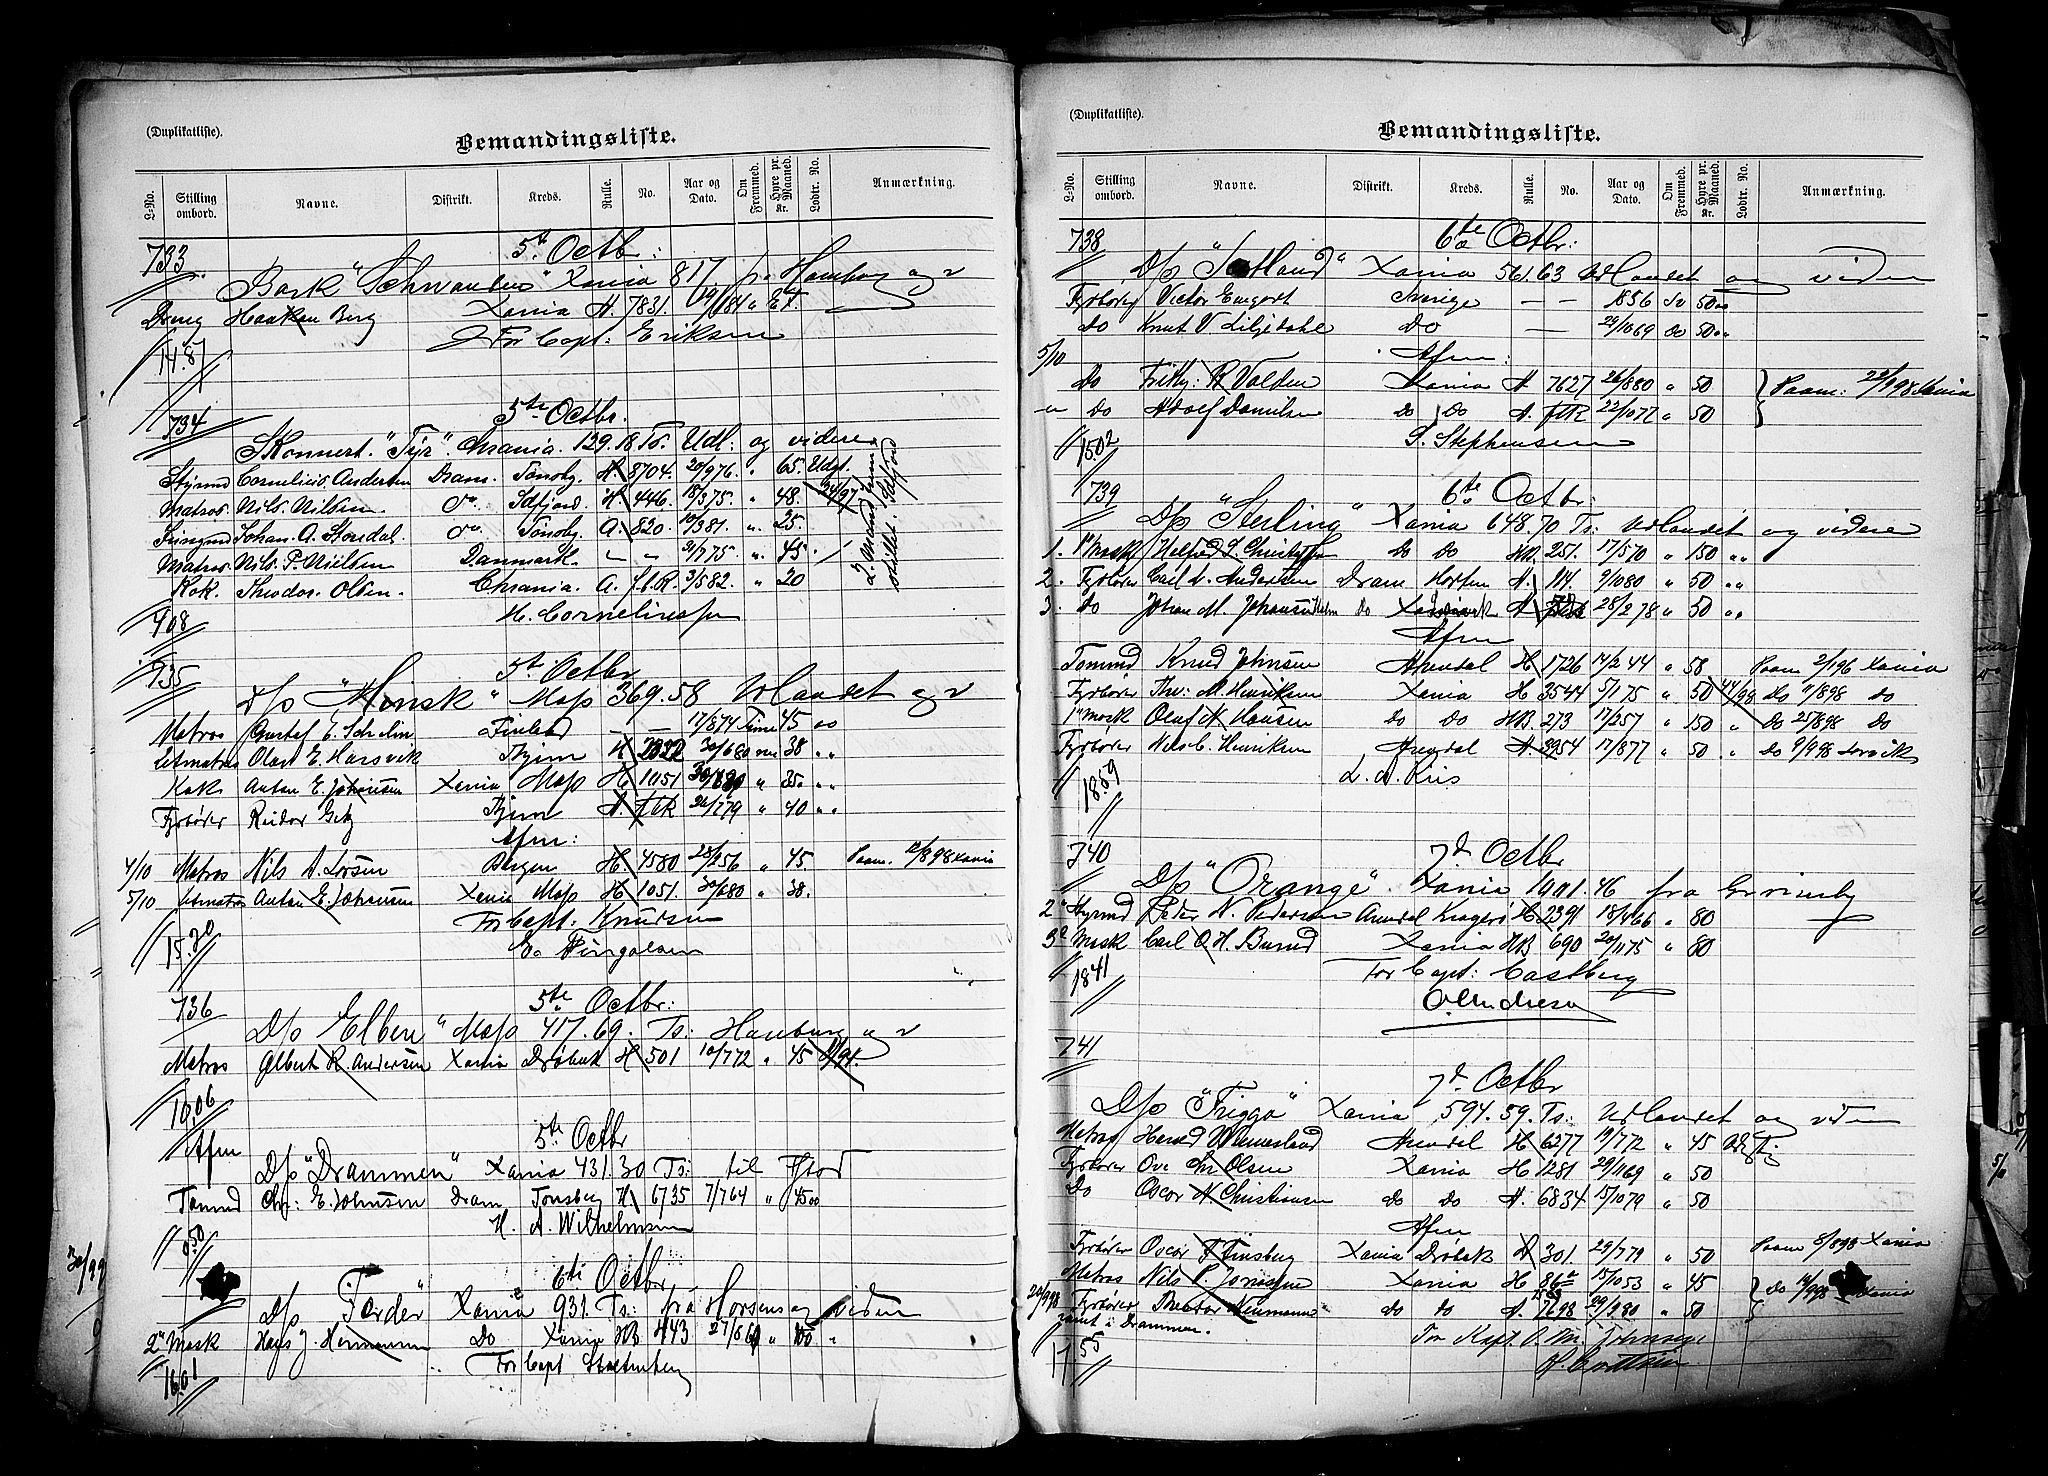 (Duplikatliste).
Bemandingsliste.
L-No. Stilling ombord. Navne. Distrikt. Kreds. Rulle. No. Aar og Dato. Om Fremmed. Hyre pr. Maaned. Kr. Lodtr. No. Anmærkning.
733 5te Octbr:
Bark " Xania 817 fra Hamborg og v
Dreng Haakan Berg Xania A. 7831. 19/184 " Et.
For Capt: Eriksen
14.87
734 5te Octbr.
Skonnert. "Tyr" Chrania. 129.18 Ts. Udl: og videre
Styrmd Cornelius. Andersen Dram. Tønsbg. H. 8704. 20/976. " 65. Udgt.
Matros. Nils. Nilsen do Idfjord H. 446. 18/375. " 48. 24/97
Johan. A. Stordal. do Tønsbg. A. 820. 19/381. " 25.
Matros. Nils. P. Niilsen Danmark. - " 31/775. " 45.
Kok. Theodor. Olsen. Chrania. A. f.t.R. 3/582. " 20
H. Corneliussen
908
735 5te Octbr
D/s "Minsk" Moss 369.58 Udlandet og v
Matros Gustaf E. Finland — — 17/874 45 00
Letmatros Olaf E. Harsvik Thjem H 2022 30/680 38 "
Kok Anton E. Johansen Xania Moss H 1051 30/680 " 35 "
Fyrbøter Reidar Getz Thjem A. ftR 26/779 " 40 "
Afm:
4/10 Matros Nils A. Larsen Bergen H 4580 25/256 " 45. Paam. 12/898 Xania
5/10 Letmatros Anton E. Johansen Xania Moss H 1051. 30/680 " 38.
For Capt. Knudsen
15.30
736 5te Octbr:
D/s Elben" Moss 417.69. Ts: Hamburg og v
Matros Albert R. Andersen Xania Drøbak H 501 10/772 " 45
10.06
Afm 5te Octbr
D/s "Drammen" Xania 431.30 Ts: til
Tømmd Chr: E. Johnsen Dram Tønsberg H 6735 7/764 " 4500
H. A. Wilhelmsen
9.50
30/99
6te Octbr
D/s Færder" Xania 931. Ts: fra Horsens og viden
2n Mask Hags J. Hermansen Do Xania HB 443 27/860 " 100 "
For Capt Stoltenberg
16.01
(Duplikatliste).
Bemandingsliste.
L-No. Stilling ombord. Navne. Distrikt. Kreds. Rulle. No. Aar og Dato. Om Fremmed. Hyre pr. Maaned. Kr. Lodtr. No. Anmærkning.
738 6te Octbr:
D/s "Jotland" Xania 561.63 Udlandet og viden
Fyrbøter Victor Engort Sverige — — 1856 Sv 50 00
Do Knut V. Liljedahl Do — 29/1069 Do 50 "
5/10 Afm:
Do Frithj: R Volden Xania A 7627 26/880 " 50 Paam: 22/998 Xania
" Do Adolf Danielsen Do Do A. ftR 22/1077 " 50
S. Stephensen
1502
739 6te Octbr:
D/s "Sterling" Xania 648.70 Ts: Udlandet og videre
1. 1n Mask Halfred S. Do Do HB. 251. 17/570 " 150 "
2. Fyrbøter Carl A. Andersen Dram Horten A. 114. 9/1080 " 50 "
3. Do Johan M. Johansen Do A 28/278 " 50 "
Afm
Tømmd Knud Johnsen Arendal H 1726 14/244 " 58 Paam 2/196 Xania
Fyrbøter Thv: M. Henriksen Xania H 3544 5/175 " 50 44/98 Do 9/898 Do
1n Mask Olaf N. Hansen Do Do HB 273 17/257 " 150 " Do 25/898 Do
Fyrbøter Nils C. Henriksen Arendal A. 3954 17/877 " 50 " Do 9/998 Larvik
L. A. Riis
1859
740 7de Octbr
D/s "Orange". Xania 1901.46 fra Grimsby
2n Styrmd Peder N. Pedersen Arendal Kragerø H 2391 18/466 " 80
3de Mask Carl O. H. Xania HB 690 20/1175 " 80
For Capt: Castberg
1841
741 7de Octbr
D/s "Frigga" Xania 594.59. Ts: Udlandet og viden
Matros Arendal H 6277 19/772 " 45
Fyrbøter Ove Chr Olsen Xania H 1281 29/1169 " 50
Do Oscar N. Christiansen Do Do A. 6834 15/1079 " 50
Afm
Fyrbøter Oscar Tinsberg Xania Drøbak A 301. 29/779 " 50 Paam 8/898 Xania
Matros Nils P. Xania H 86 15/1053 " 45
20/998 Fyrbøter Theodor Neumann Do Do A. 7698 29/980 " 50 Do 14/998 Xania
rømt i Drammen.
For Kapt O. M.
17.55